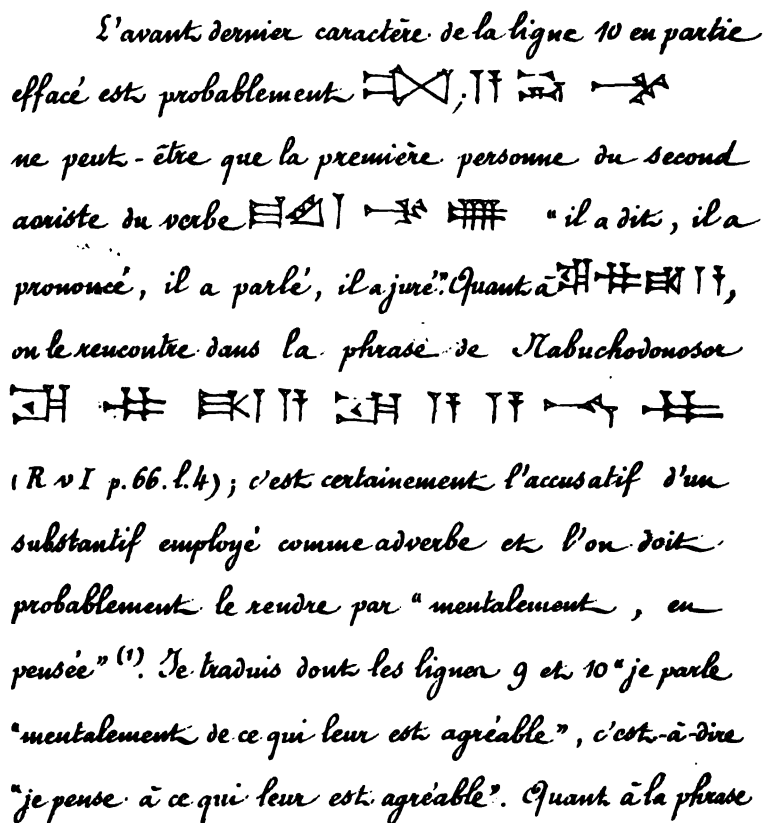 L'avant dernier caractère de la ligne 10 en partie
effacé est probablement ;
ne peut-être que la première personne du second
aoriste du verbe "il a dit, il a
prononcé, il a parlé, il a juré". Quant à ,
on le rencontre dans la phrase de Nabuchodonosor
(R v I p. 66. l. 4) ; c'est certainement l'accusatif d'un
substantif employé comme adverbe et l'on doit
probablement le rendre par "mentalement, en
pensée" (1). Je traduis dont les lignes 9 et 10 "je parle
"mentalement de ce qui leur est agréable", c'est-à-dire
"je pense à ce qui leur est agréable". Quant à la phrase